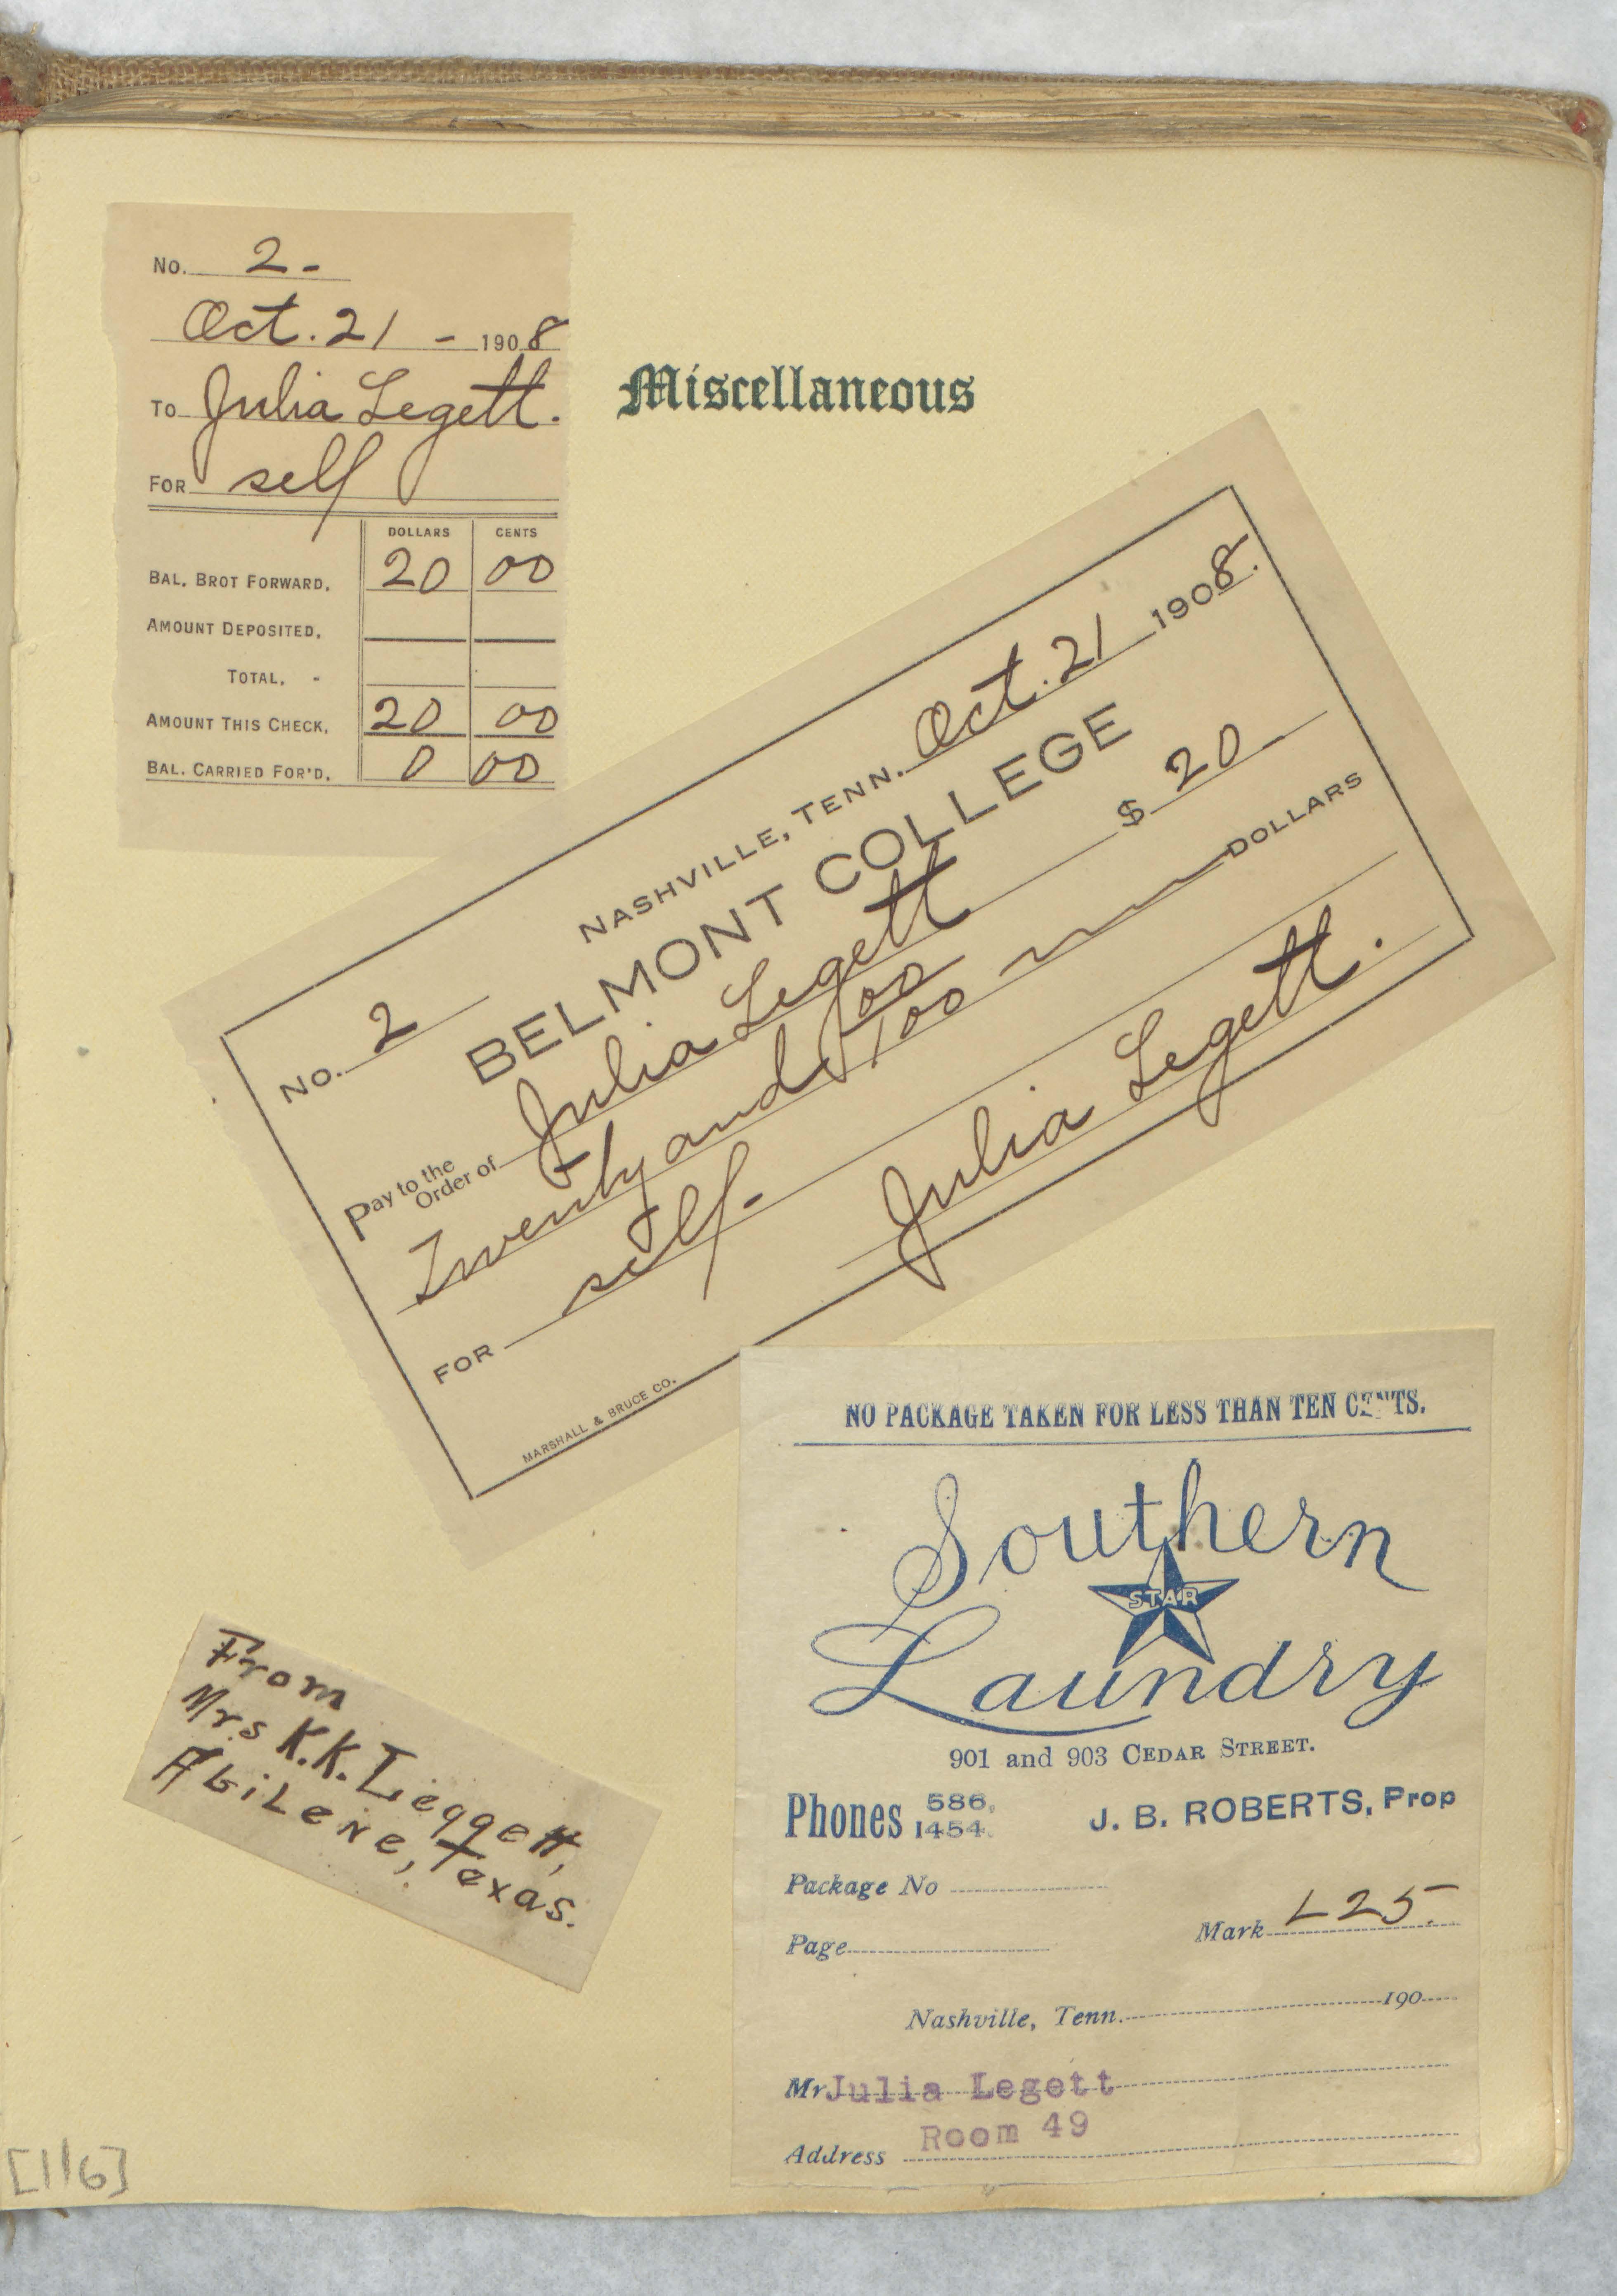 No. 2 -
Oct. 21 - 1908
To Julia Legett.
For self
DOLLARS CENTS
BAL. BROT FORWARD. 20 00
AMOUNT DEPOSITED.
TOTAL. -
AMOUNT THIS CHECK. 20 00
BAL. CARRIED FOR'D. 0 00
Miscellaneous
NASHVILLE, TENN. Oct. 21 1908.
No. 2
BELMONT COLLEGE
Pay to the Order of Julia Legett $ 20 -
Twenty and 00/100 DOLLARS
FOR self.
Julia Legett.
MARSHALL & BRUCE CO.
NO PACKAGE TAKEN FOR LESS THAN TEN CENTS.
Southern
STAR
Laundry
901 and 903 CEDAR STREET.
Phones 586, 1454. J. B. ROBERTS, Prop
Package No
Mark L25.
Page
Nashville, Tenn. 190
Mr Julia Legett
Room 49
Address
From
Mrs K.K. Leggett,
Abilene, Texas.
[116]